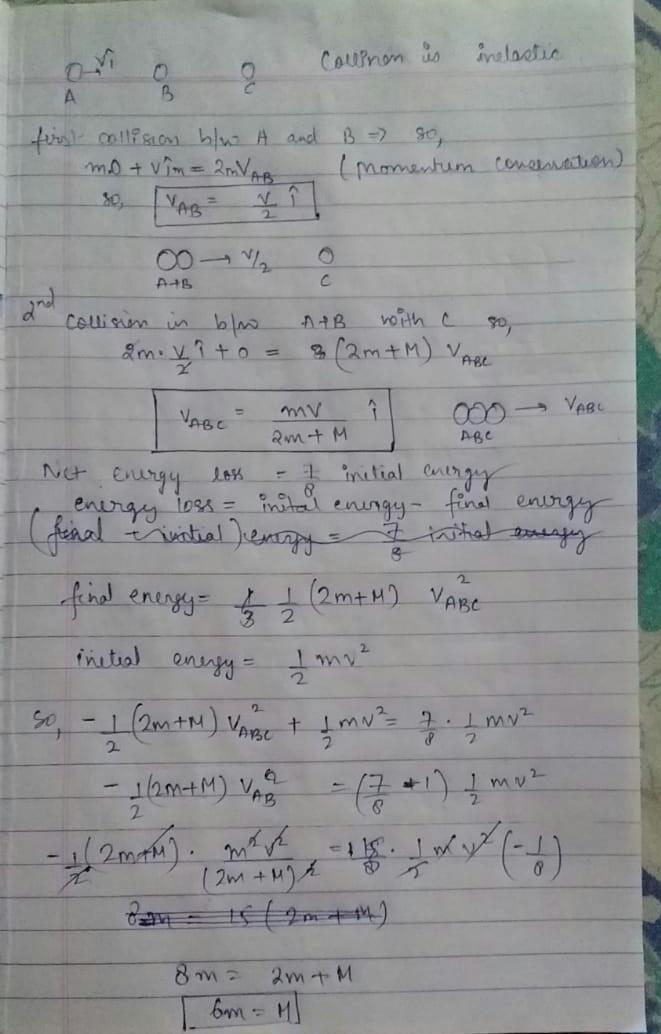 Vî Collision is inelastic
A B C
first collision b/w A and B => so,
m0 + Vîm = 2mV_AB (Momentum conservation)
so, V_AB = V/2 î
OO → V/2 O
A+B C
2nd collision in b/w A+B with C so,
2m · V/2 î + 0 = (2m+M) V_ABC
V_ABC = mV/(2m+M) î OOO → V_ABC
ABC
Net Energy loss = 7/8 initial energy
energy loss = inital energy - final energy
(final - initial) energy = 7/8 initial energy
final energy = 1/2 (2m+M) V_ABC^2
initial energy = 1/2 mv^2
So, -1/2 (2m+M) V_ABC^2 + 1/2 mv^2 = 7/8 · 1/2 mv^2
-1/2 (2m+M) V_AB^2 = (7/8 - 1) 1/2 mv^2
-1/2 (2m+M) · m^2v^2/(2m+M)^2 = 1/2 mv^2 (-1/8)
= 15 (2m+M)
8m = 2m+M
6m = M